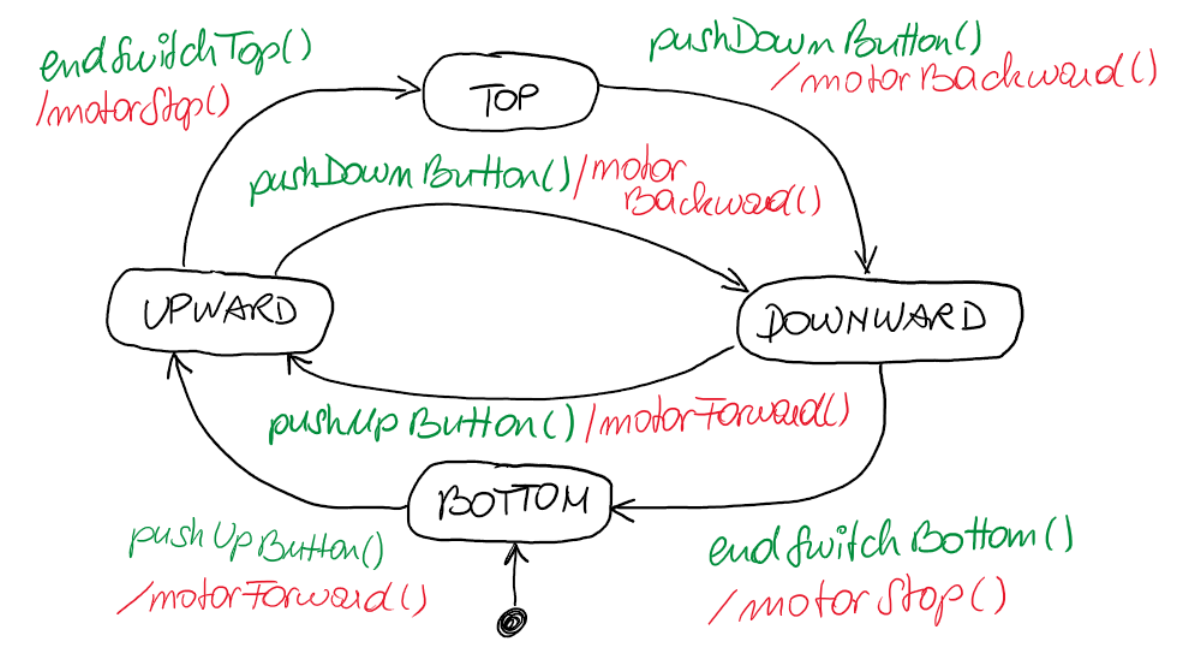 endSwitchTop()
/motorStop()
TOP
pushDownButton()
/motorBackward()
pushDownButton()/motor
Backward()
UPWARD
DOWNWARD
pushUpButton()/motorForward()
BOTTOM
pushUpButton()
/motorForward()
endSwitchBottom()
/motorStop()